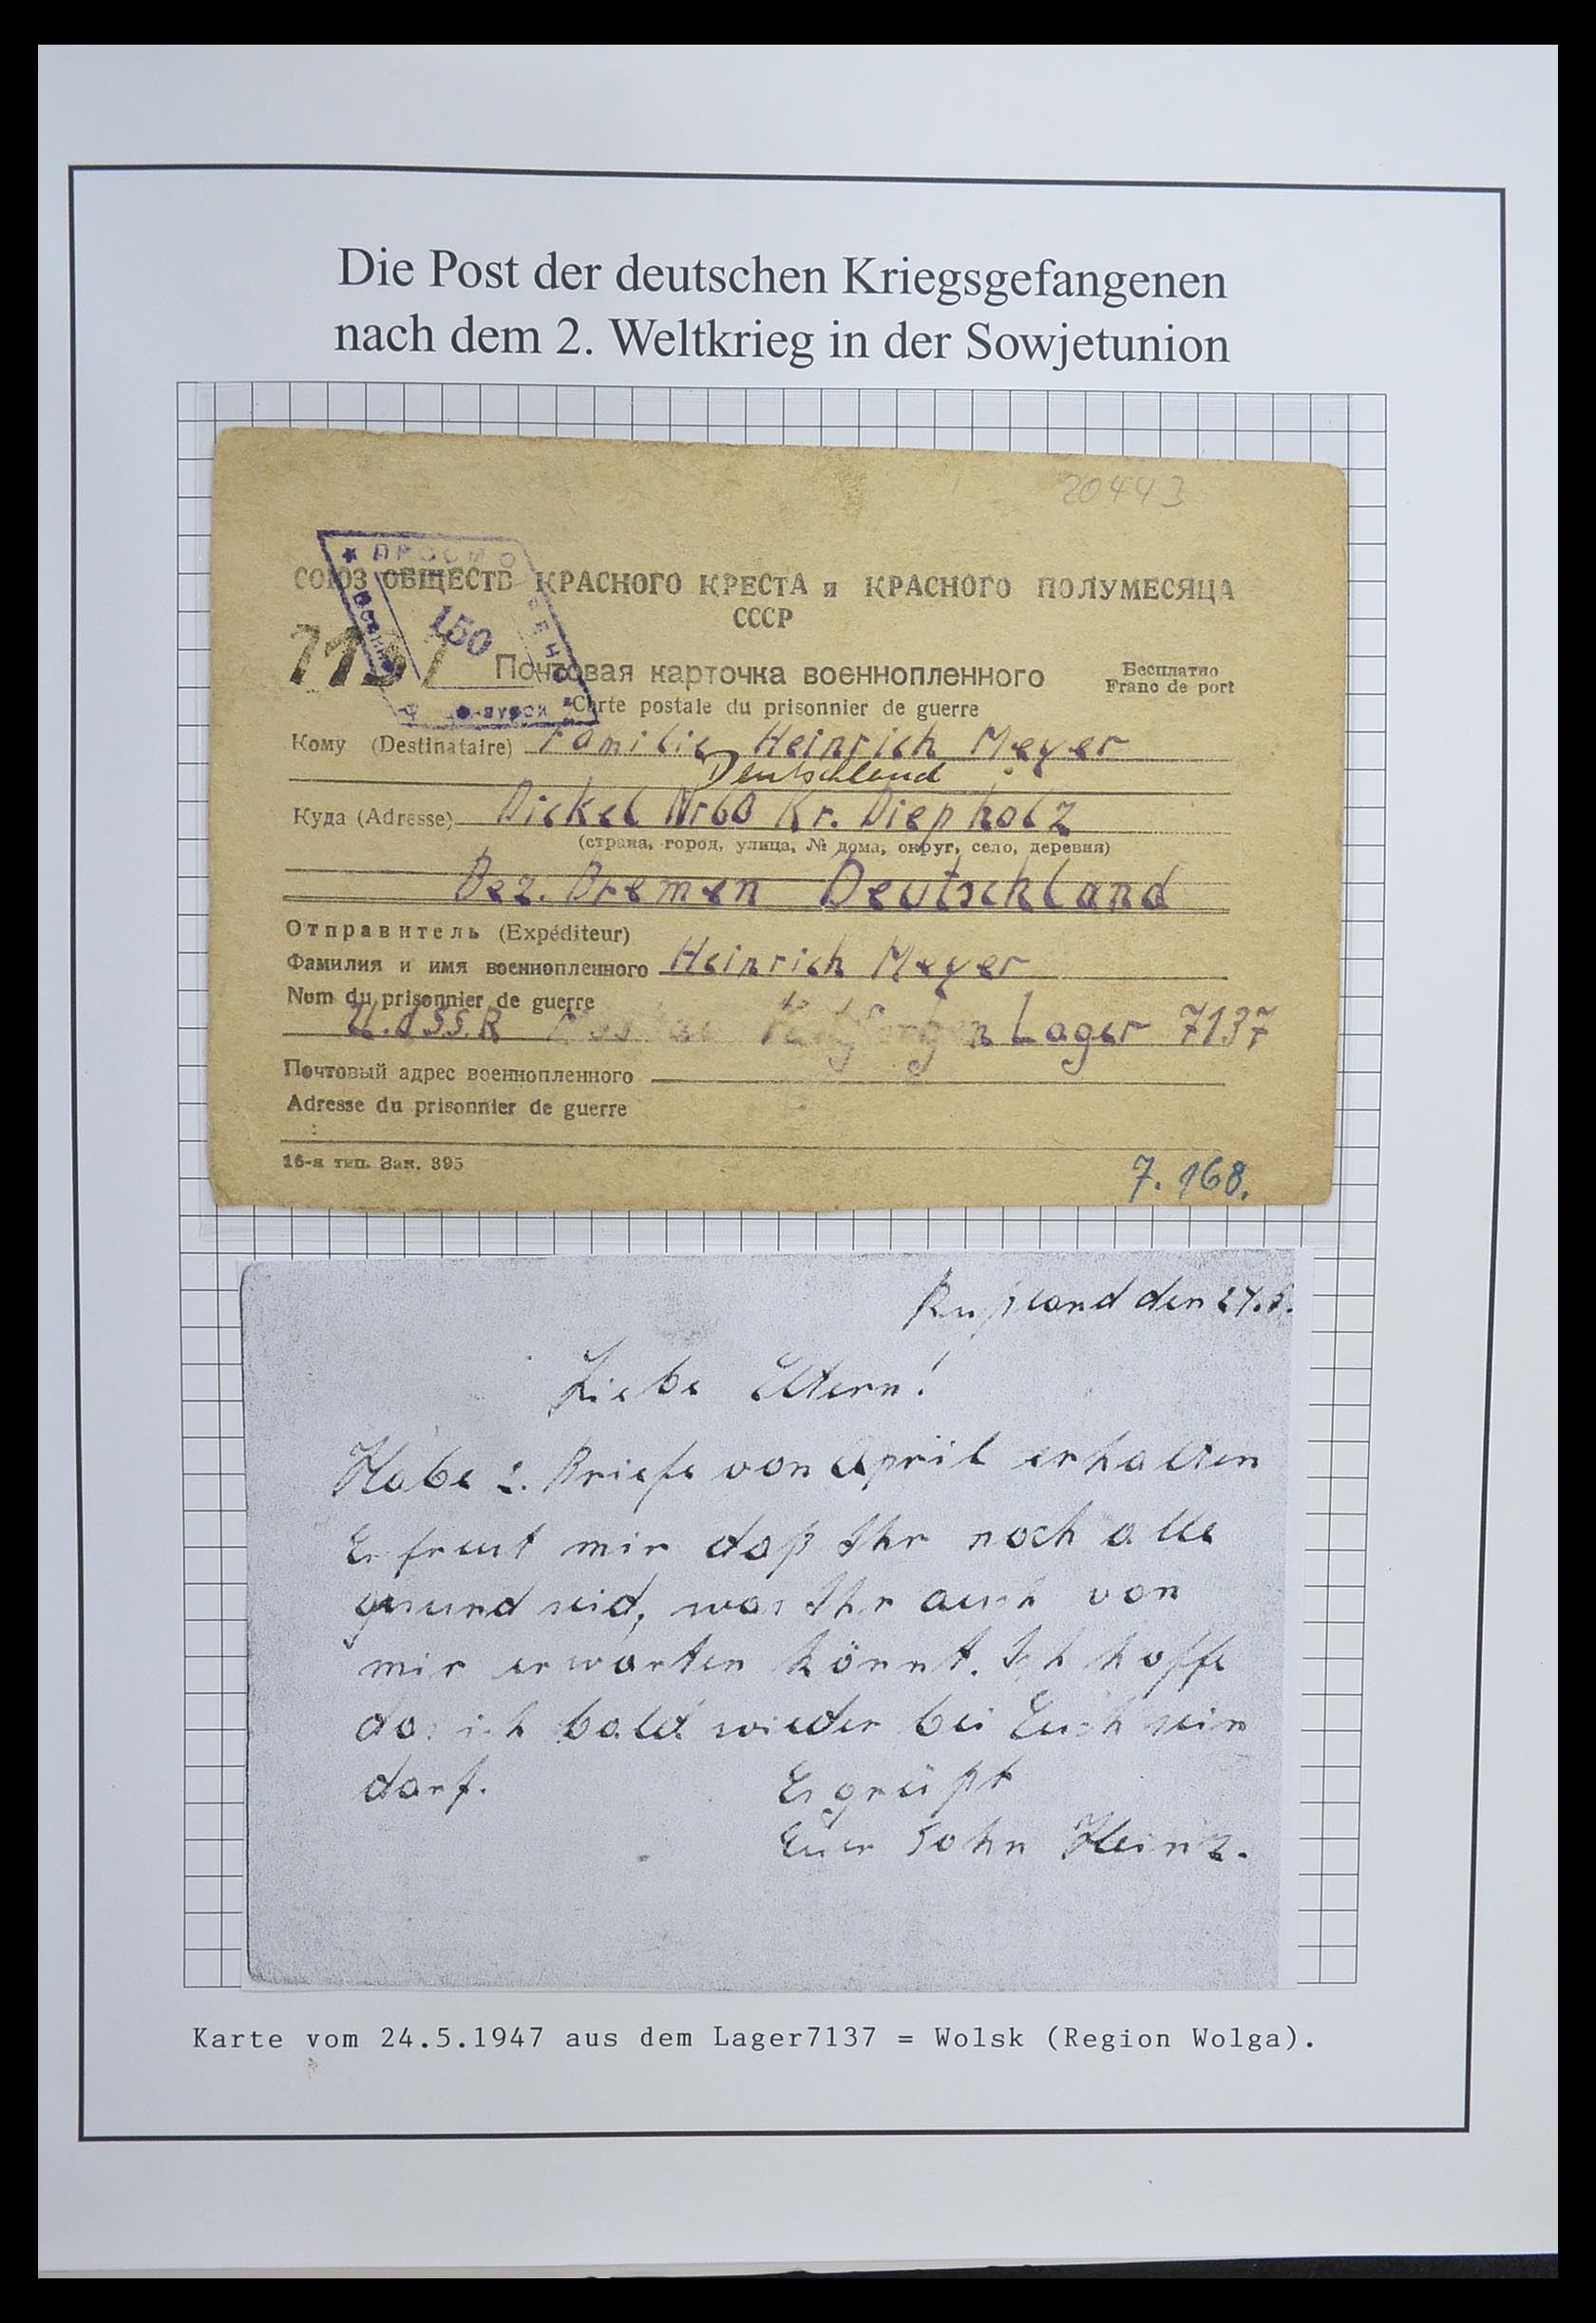 Die Post der deutschen Kriegsgefangenen
nach dem 2. Weltkrieg in der Sowjetunion
20443
СОЮЗ ОБЩЕСТВ КРАСНОГО КРЕСТА и КРАСНОГО ПОЛУМЕСЯЦА
СССР
150
7137
Почтовая карточка военнопленного
Бесплатно
Franc de port
Carte postale du prisonnier de guerre
Кому (Destinataire) Familie Heinrich Meyer
Deutschland
Куда (Adresse) Dickel Nr 60 Kr. Diepholz
(страна, город, улица, № дома, округ, село, деревня)
Bez. Bremen Deutschland
Отправитель (Expéditeur)
Фамилия и имя военнопленного Heinrich Meyer
Nom du prisonnier de guerre
U.dSS.R Lager 7137
Почтовый адрес военнопленного
Adresse du prisonnier de guerre
16-я тип. Зак. 395
7. 168.
Rußland den 24.5.
Liebe Eltern!
Habe 2. Briefe von April erhalten
Es freut mir daß Ihr noch alle
gesund seid, was Ihr auch von
mir erwarten könnt. Ich hoffe
das ich bald wieder bei Euch sein
darf. Es grüßt
Euer Sohn Heinz.
Karte vom 24.5.1947 aus dem Lager7137 = Wolsk (Region Wolga).